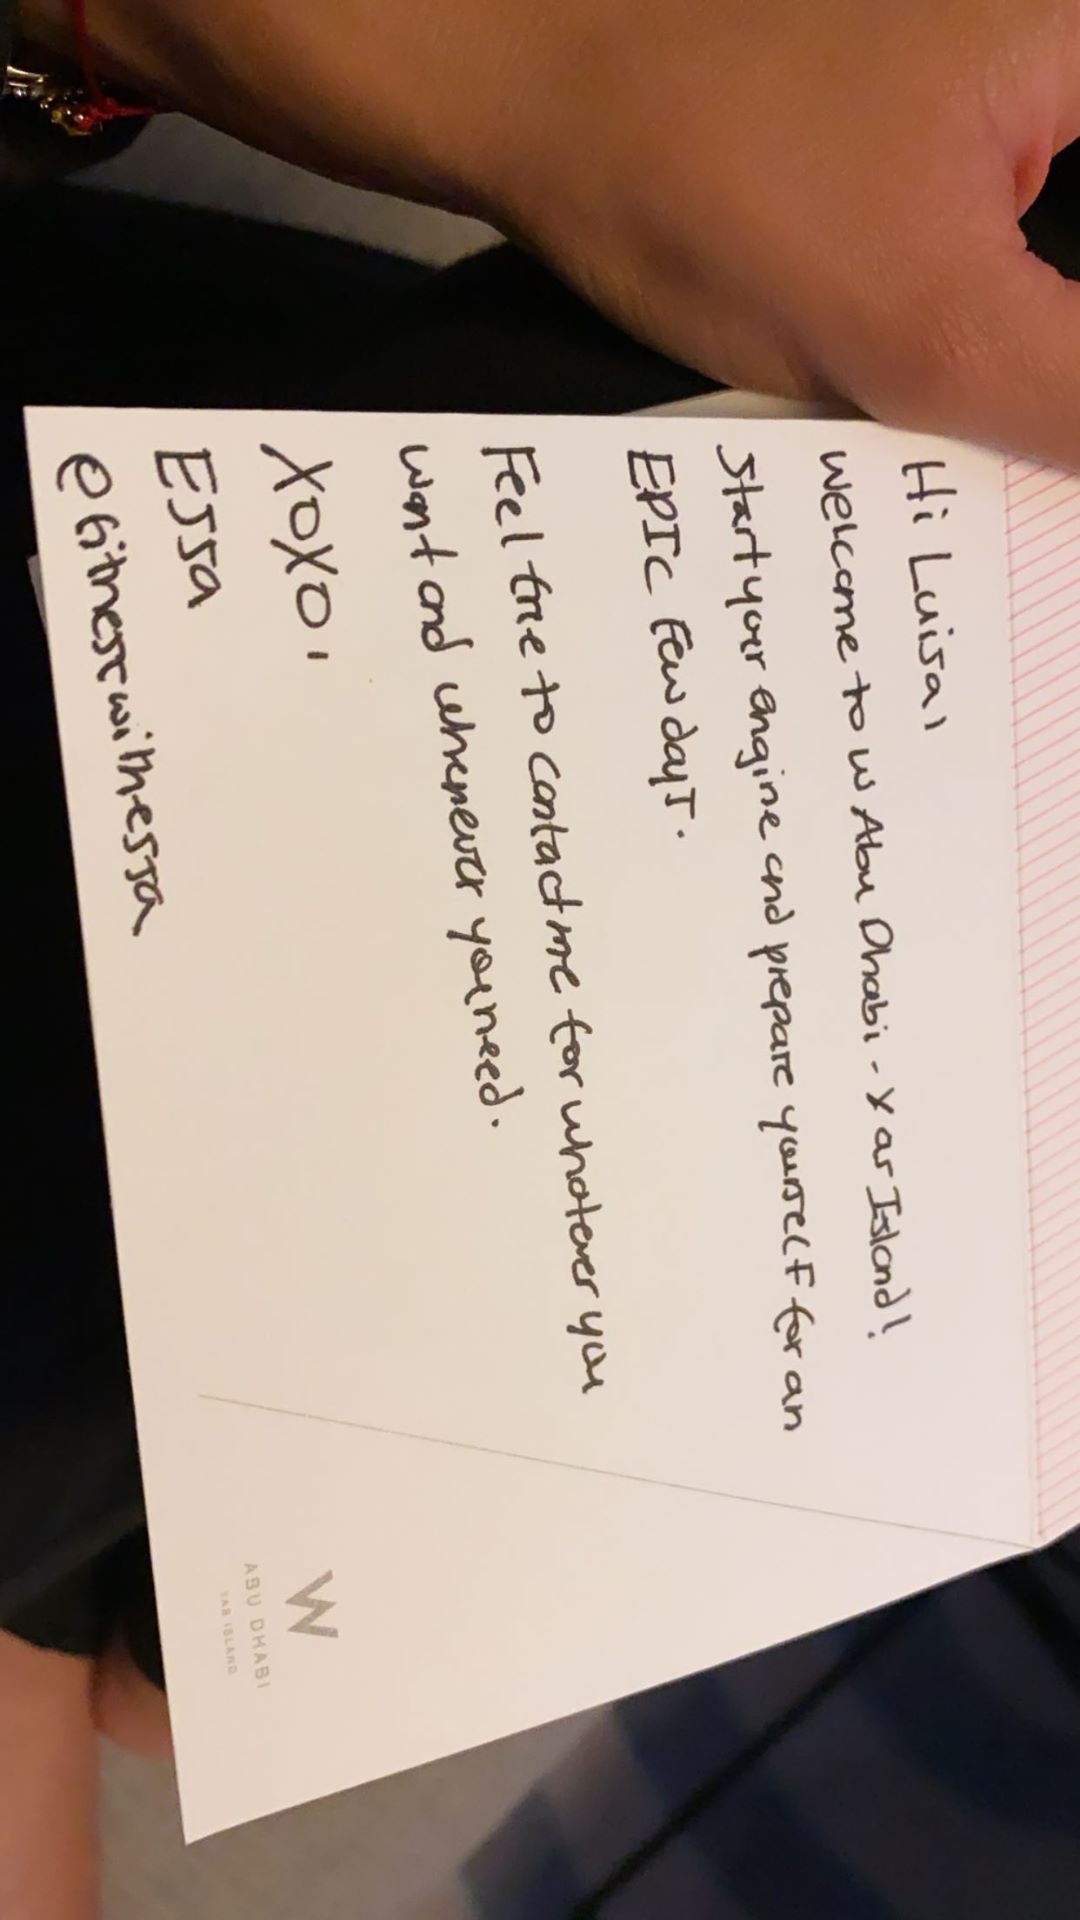 Hi Luisa,
Welcome to W Abu Dhabi - Yas Island!
Start your engine and prepare yourself for an
EPIC Few days.
Feel free to contact me for whatever you
want and whenever you need.
XOXO,
Essa
@fitnesswithessa
W
ABU DHABI
YAS ISLAND